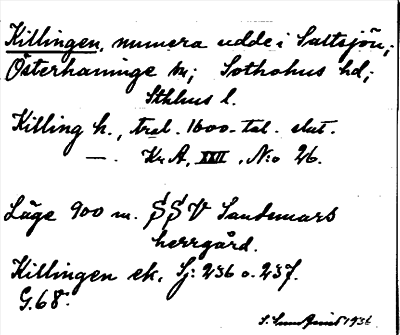 Killingen, numera udde i Saltsjön,;
Österhaninge sn; Sotholms hd;
Sthlms l.
Killing h., trol. 1600-tal. slut.
—. Kr A, XXII, N:o 26.
Läge 900 m. SSV Sandemars
herrgård.
Killingen ek. Sj: 236 o. 237.
G.68.
1936